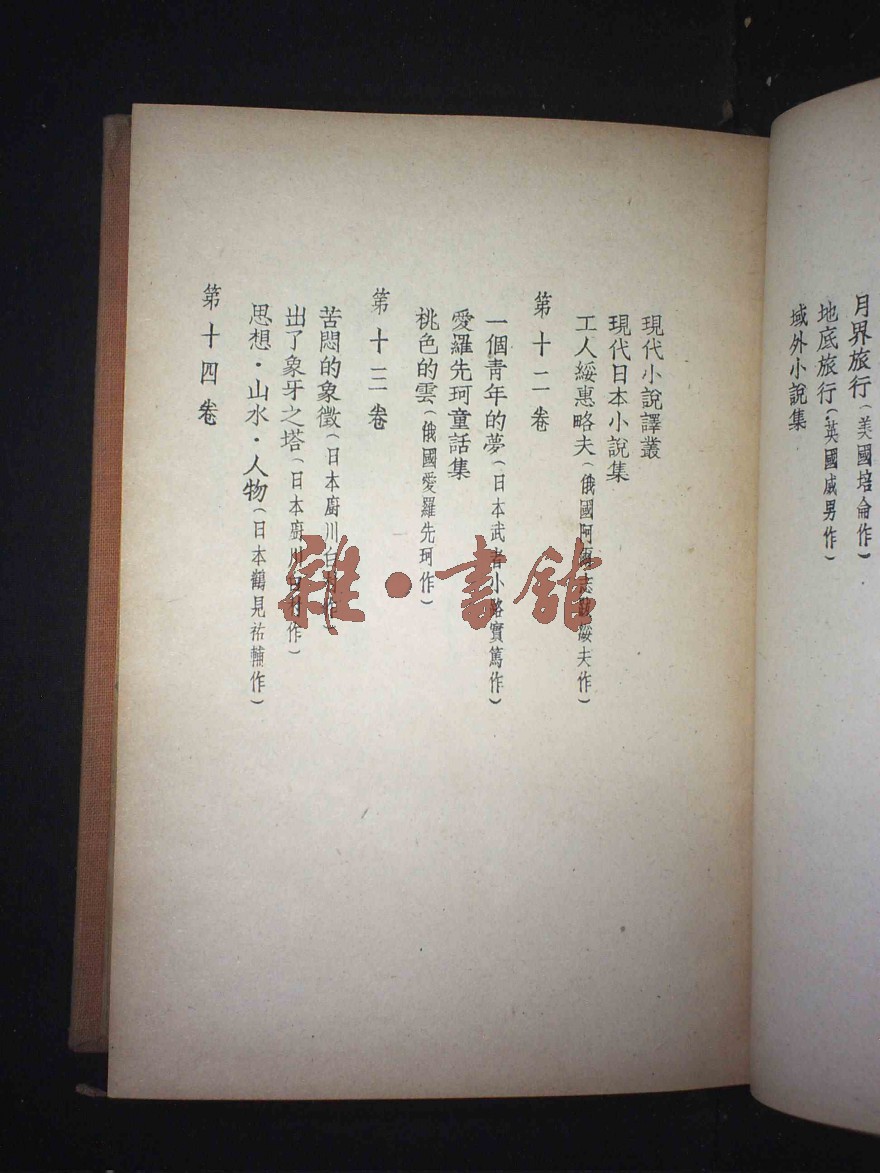 月界旅行（美國培侖作）
地底旅行（英國威男作）
域外小說集
現代小說譯叢
現代日本小說集
工人綏惠略夫（俄國阿爾志跋綏夫作）
第十二卷
一個靑年的夢（日本武者小路實篤作）
愛羅先珂童話集
桃色的雲（俄國愛羅先珂作）
第十三卷
苦悶的象徵（日本廚川白村作）
出了象牙之塔（日本廚川白村作）
思想・山水・人物（日本鶴見祐輔作）
第十四卷
雜・書館